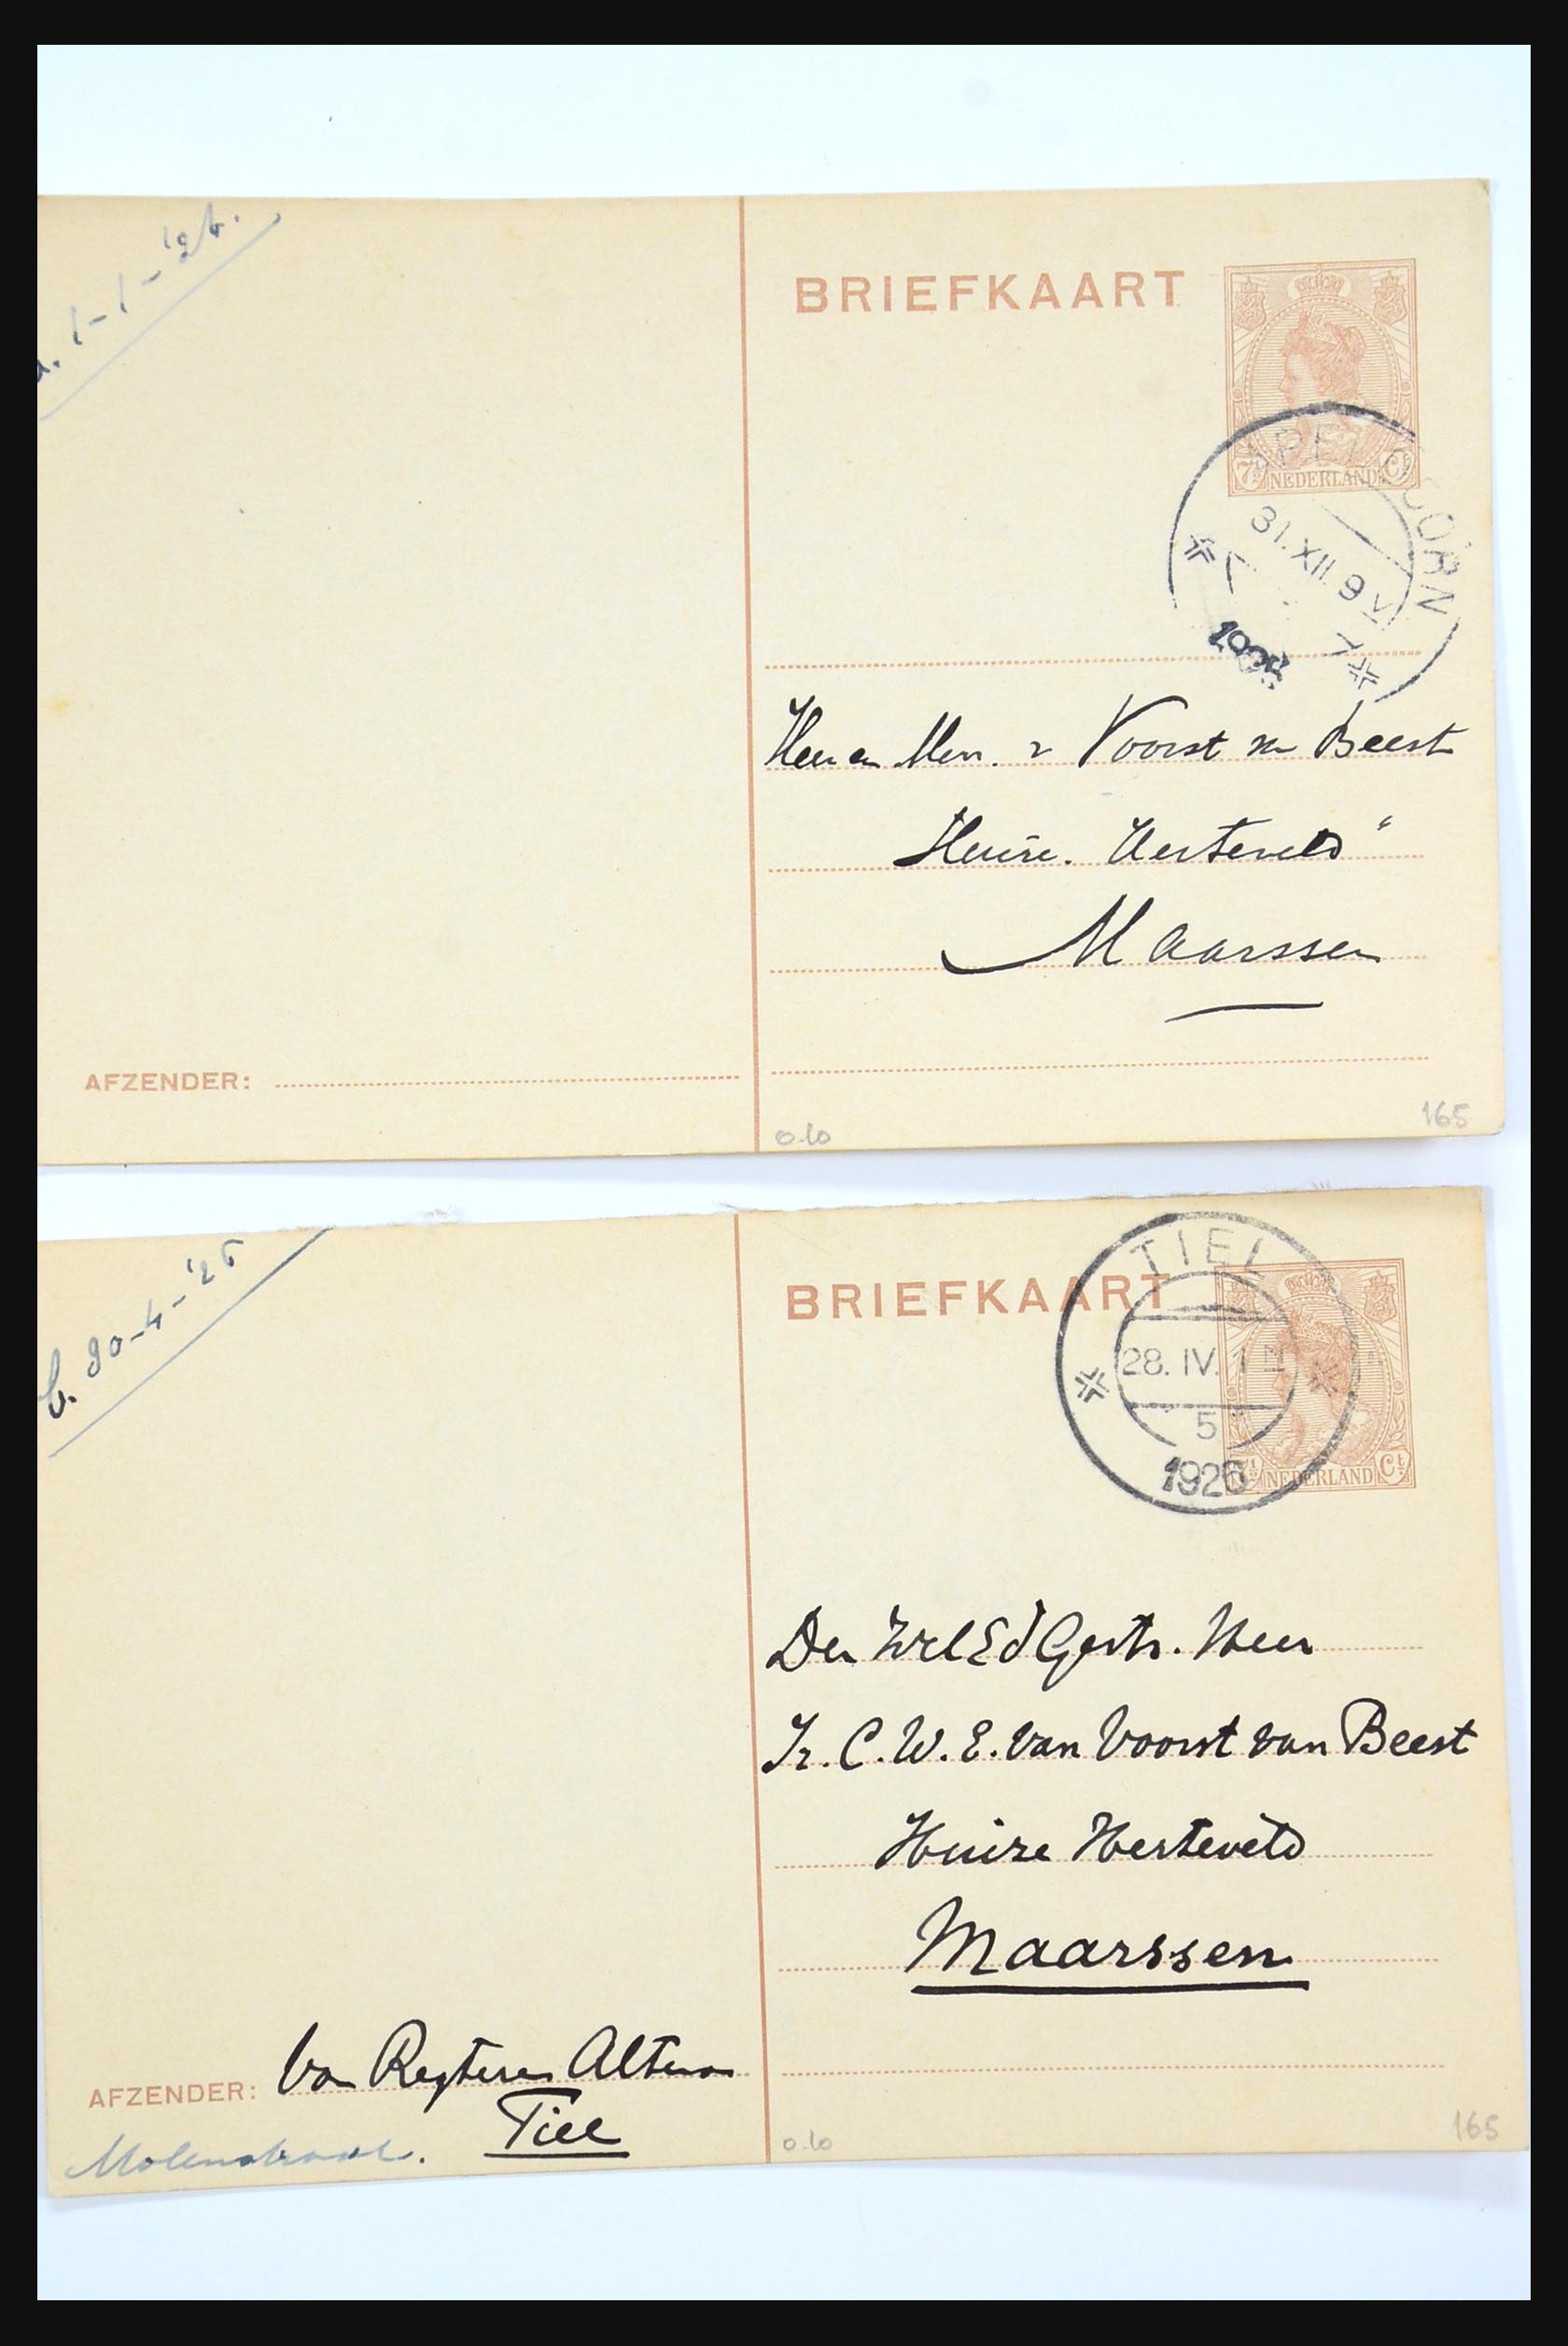 1-1-'26.
BRIEFKAART
7½ NEDERLAND Ct
APELDOORN
31.XII. 9 V
1925
Heer en Mevr. v Voorst v. Beest
Huize. Herteveld"
Maarssen
AFZENDER:
0.10
165
b. 30-4-'26
BRIEFKAART
TIEL
28. IV. 1 N
5
1926
7½ NEDERLAND Ct
Den WelEdGestr. Heer
Ir. C. W. E. van Voorst van Beest
Huize Herteveld
Maarssen
AFZENDER: Van Regteren Altena
Tiel
Molenstraat.
0.10
165